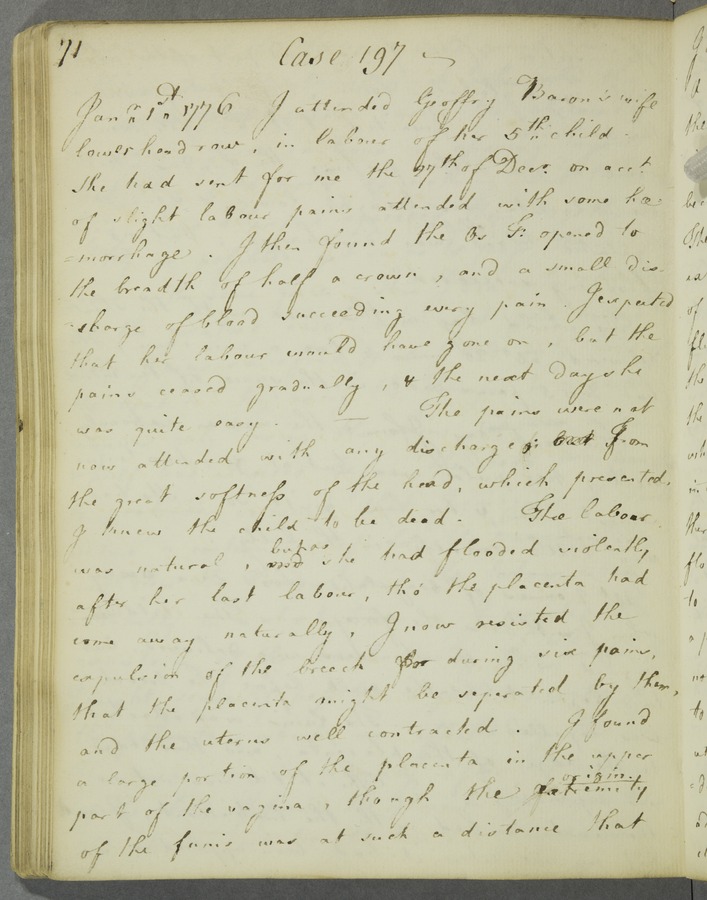 71
Case 197
Jany 1st 1776 I attended Geoffry Baron's wife
lower head row, in labour of her 5th child.
She had sent for me the 27th of Decr. on acct.
of slight labour pains attended with some hæ-
=morrhage. I then found the Os T: opened to
the breadth of half a crown, and a small dis-
-charge of blood succeeding every pain. I expected
that her labour would have gone on, but the
pains ceased gradually, & the next day she
was quite easy. — The pains were not
now attended with any discharge; but from
the great softness of the head, which presented,
I knew the child to be dead. The labour
was natural, but as she had flooded violently
after her last labour, tho' the placenta had
come away naturally, I now resisted the
expulsion of the breech for during six pains,
that the placenta might be seperated by them,
and the uterus well contracted. I found
a large portion of the placenta in the upper
part of the vagina, though the extremity origin
of the funis was at such a distance that